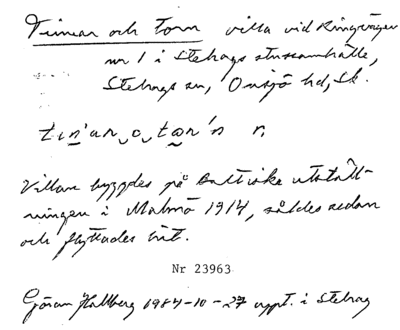 Tinnar och torn villa vid Ringvägen
nr 1 i Stehags stussamhälle,
Stehags sn, Onsjö hd, Sk.
tin'ar o tor'n r,
Villan byggdes på Baltiska utställ-
ningen i Malmö 1914, såldes sedan
och flyttades hit.
Nr 23963
Göran Hallberg 1984-10-27 uppt. i Stehag